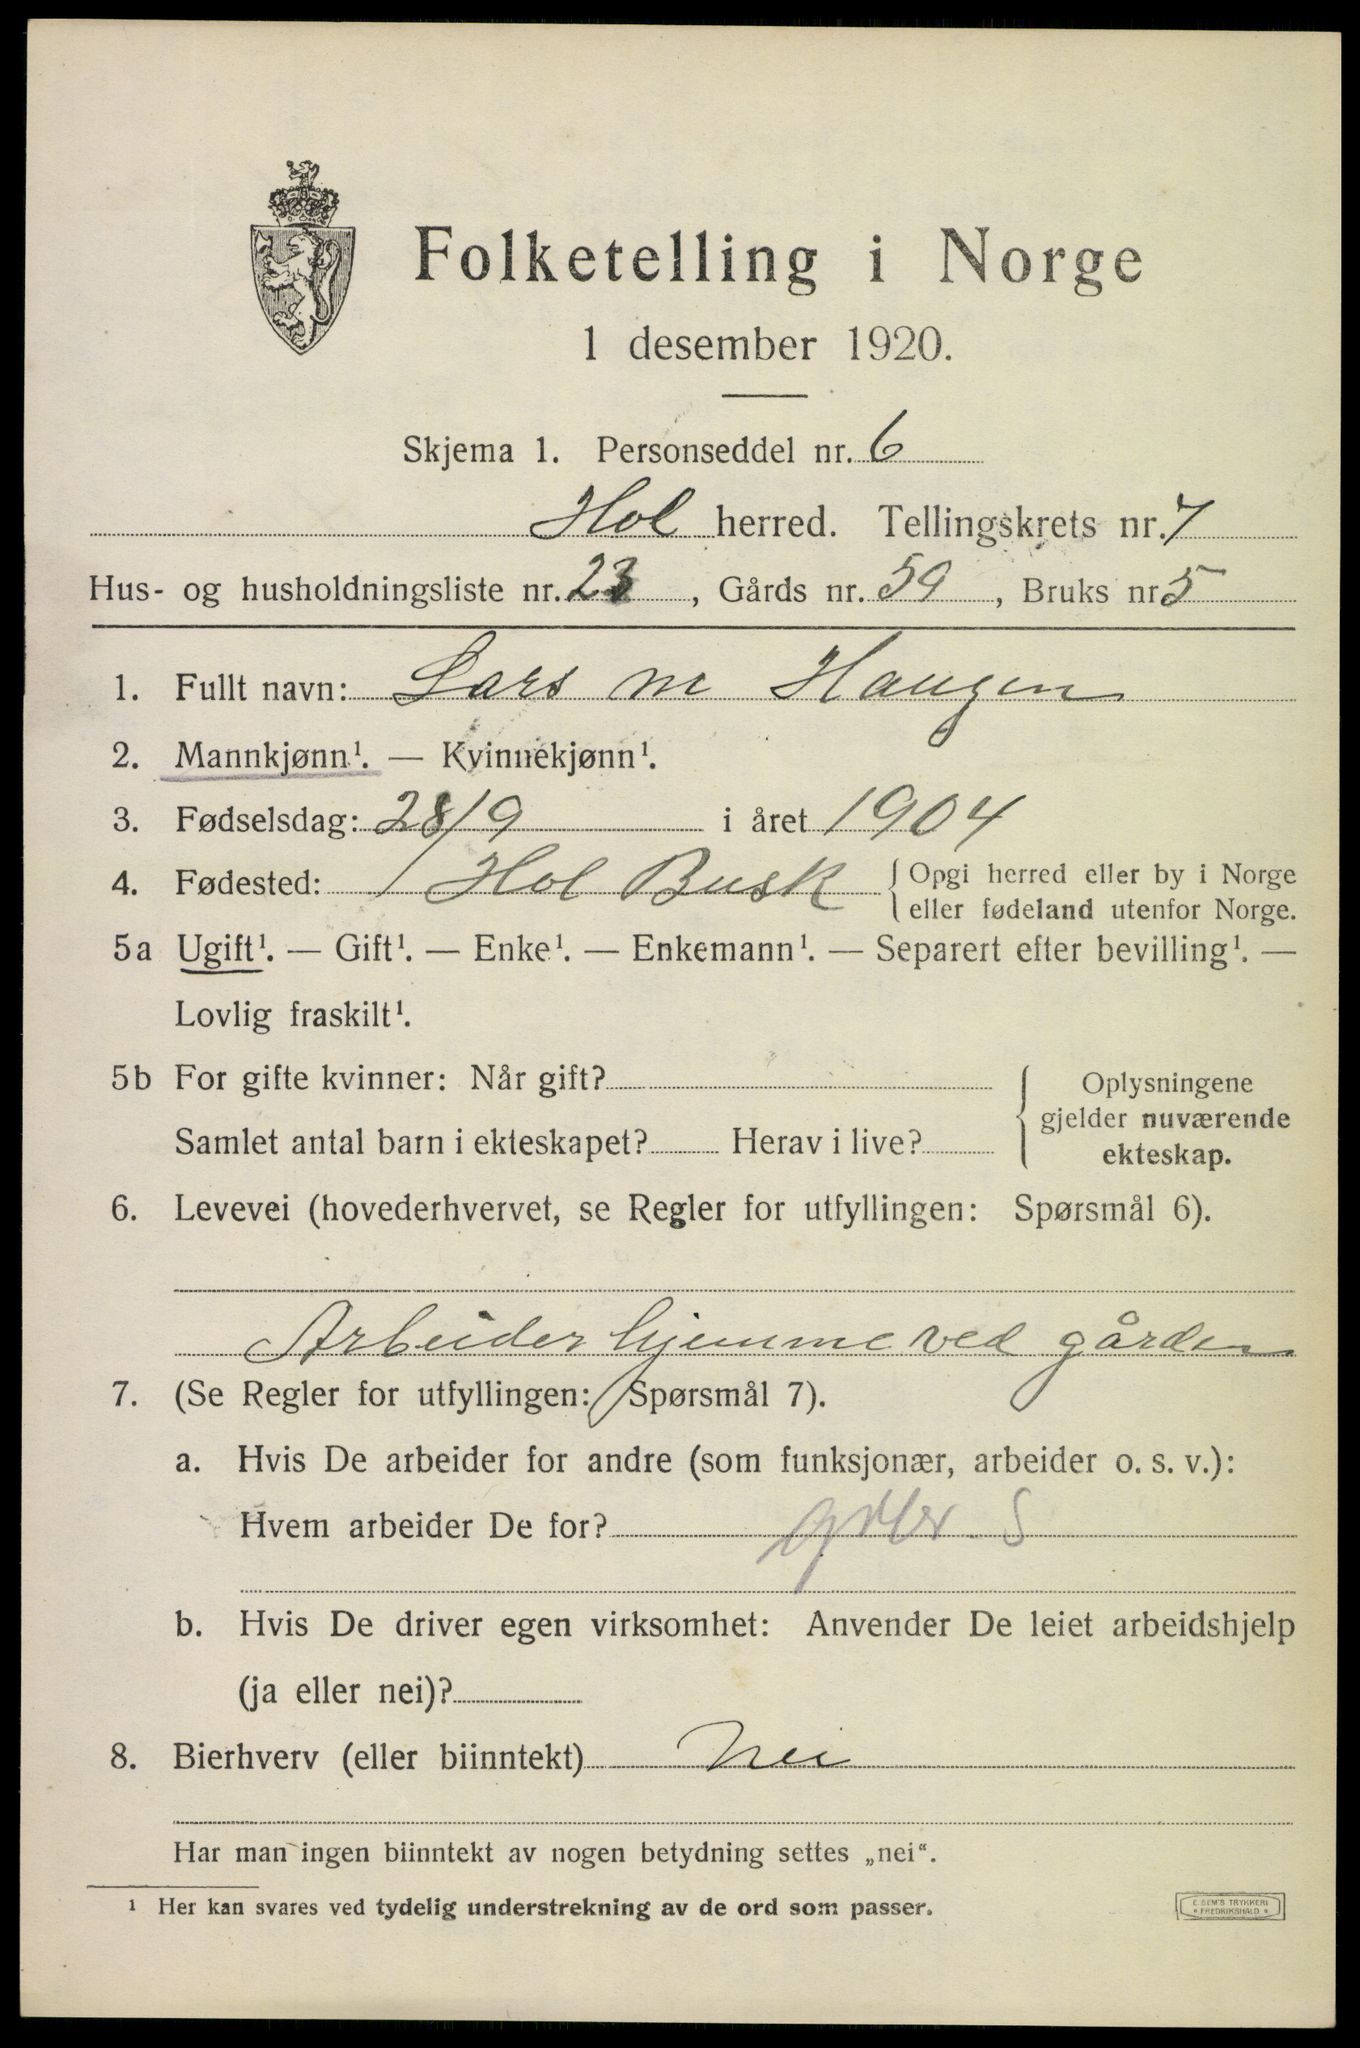 Folketelling i Norge
1 desember 1920.
Skjema 1. Personseddel nr. 6
Hol herred. Tellingskrets nr. 7
Hus- og husholdningsliste nr. 23, Gårds nr. 59, Bruks nr 5
1. Fullt navn: Lars M Haugen
2. Mannkjønn¹. — Kvinnekjønn¹.
3. Fødselsdag: 28/9 i året 1904
4. Fødested: Hol Busk { Opgi herred eller by i Norge
eller fødeland utenfor Norge.
5a Ugift¹. — Gift¹. — Enke¹. — Enkemann¹. — Separert efter bevilling¹. —
Lovlig fraskilt¹.
5b For gifte kvinner: Når gift? { Oplysningene
gjelder nuværende
Samlet antal barn i ekteskapet? Herav i live?
ekteskap.
6. Levevei (hovederhvervet, se Regler for utfyllingen: Spørsmål 6).
Arbeider hjemme ved gården
7. (Se Regler for utfyllingen: Spørsmål 7).
a. Hvis De arbeider for andre (som funksjonær, arbeider o. s. v.):
Hvem arbeider De for? S
b. Hvis De driver egen virksomhet: Anvender De leiet arbeidshjelp
(ja eller nei)?
8. Bierhverv (eller biinntekt) Nei
Har man ingen biinntekt av nogen betydning settes „nei“.
¹ Her kan svares ved tydelig understrekning av de ord som passer.
E. SEM'S TRYKKERI
* FREDRIKSHALD *